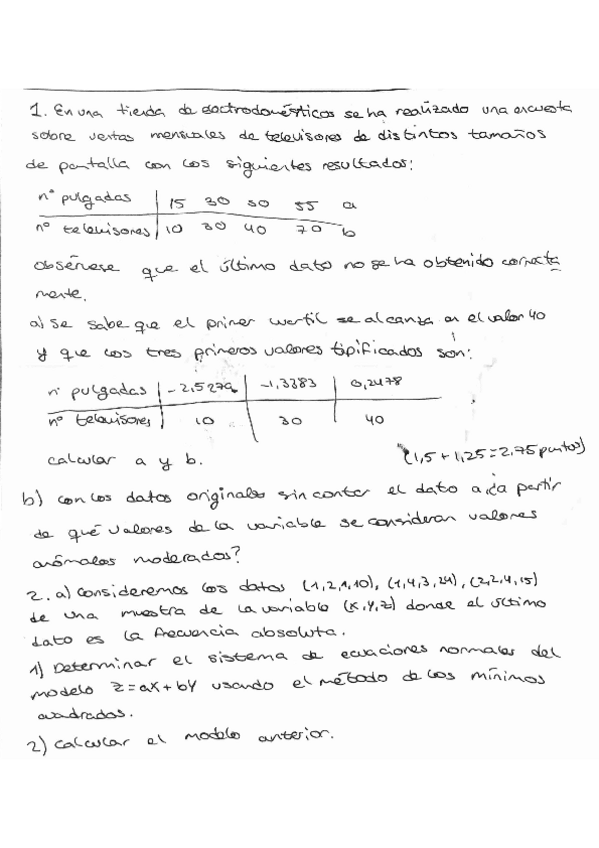 1. En una tienda de electrodomésticos se ha realizado una encuesta
sobre ventas mensuales de televisores de distintos tamaños
de pantalla con los siguientes resultados:
nº pulgadas | 15 30 50 55 a
nº televisores | 10 30 40 70 b
obsérvese que el último dato no se ha obtenido correcta
mente.
a) Se sabe que el primer cuartil se alcanza en el valor 40
y que los tres primeros valores tipificados son:
nº pulgadas | -2,5279 | -1,3383 | 0,2478
nº televisores | 10 | 30 | 40
calcular a y b. (1,5 + 1,25 = 2,75 puntos)
b) con los datos originales sin contar el dato a ¿a partir
de qué valores de la variable se consideran valores
anómalos moderados?
2. a) consideremos los datos (1,2,1,10), (1,4,3,24), (2,2,4,15)
de una muestra de la variable (X,Y,Z) donde el último
dato es la frecuencia absoluta.
1) Determinar el sistema de ecuaciones normales del
modelo Z=aX+bY usando el método de los mínimos
cuadrados.
2) calcular el modelo anterior.